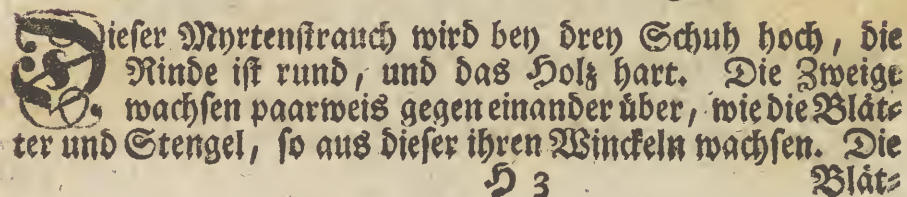 Dieſer Myrtenſtrauch wird bey drey Schuh hoch, die
Rinde iſt rund, und das Holz hart. Die Zweige
wachſen paarweis gegen einander über, wie die Blät⸗
ter und Stengel, ſo aus dieſer ihren Winckeln wachſen. Die
H 3 Blät⸗